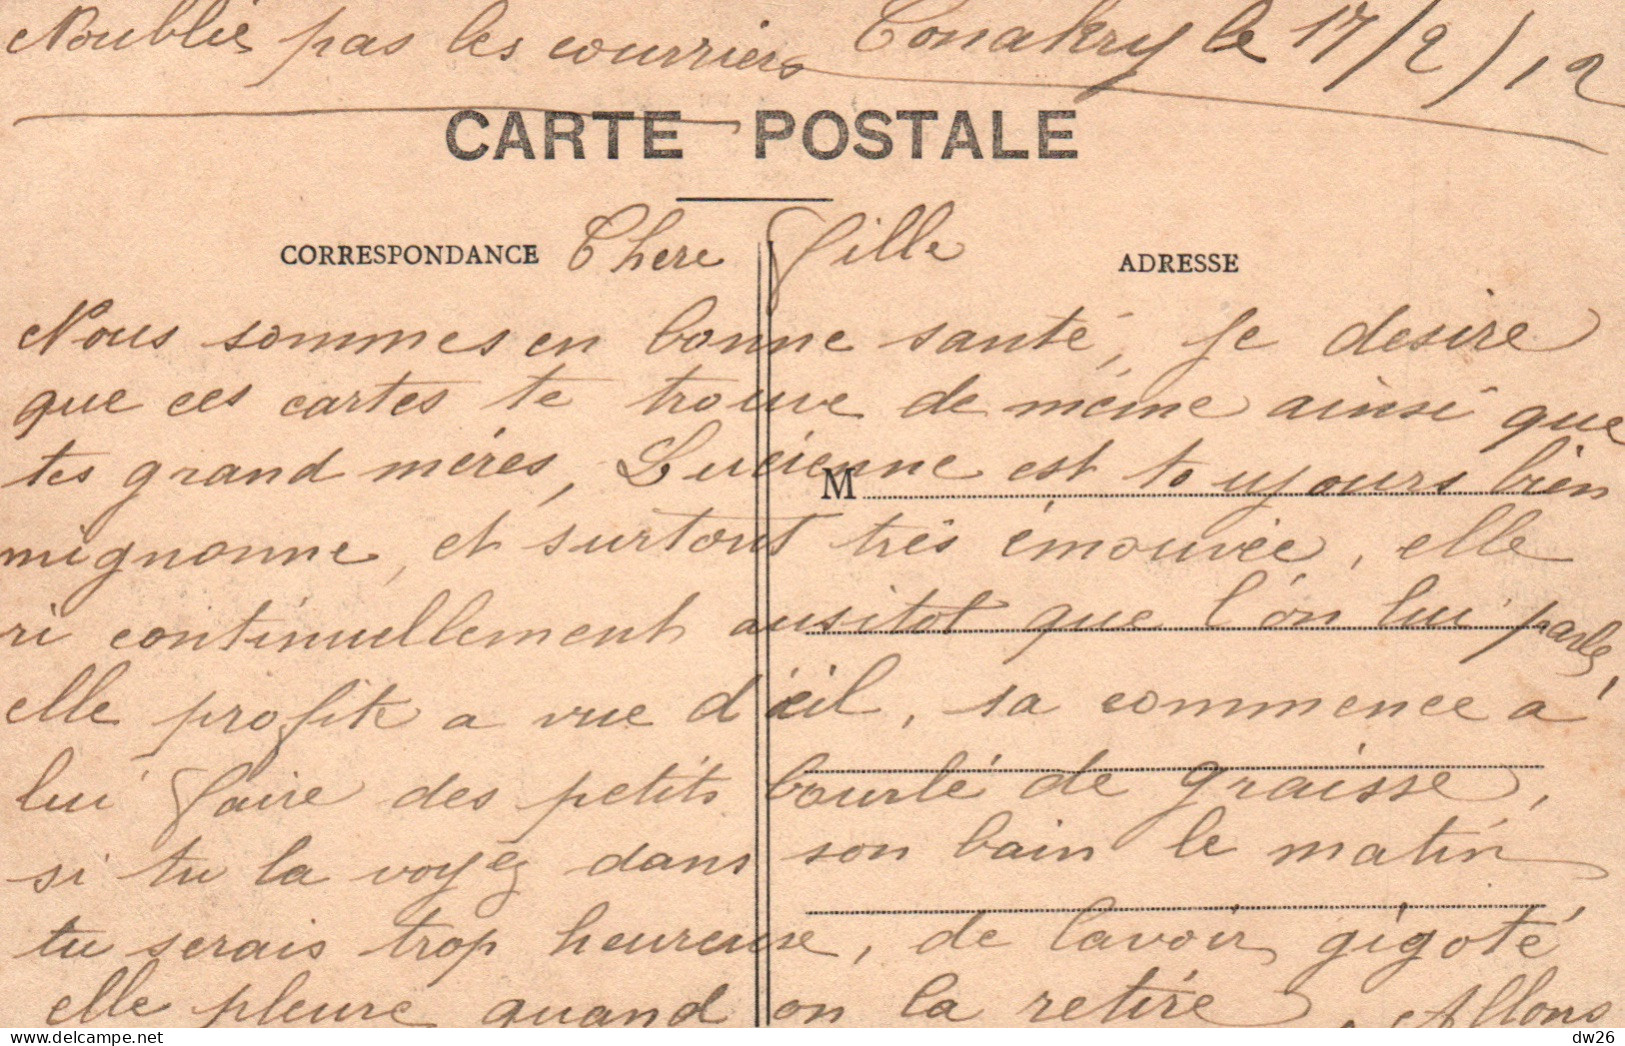 Noublié pas les courriers Conakry le 17/2/12
CARTE POSTALE
CORRESPONDANCE Chere fille ADRESSE
Nous sommes en bonne santé, je desire
que ces cartes te trouve de même ainsi que
tes grand méres, Luciènne est toujours bien
M
mignonne, et surtout très émouvée, elle
ri continuellement ausitot que l'on lui parle,
elle profite a vue d'œil, sa commence a
lui faire des petits bourlé de graisse,
si tu la voyez dans son bain le matin
tu serais trop heureuse, de lavoir gigoté
elle pleure quand on la retire. Allons
dw26